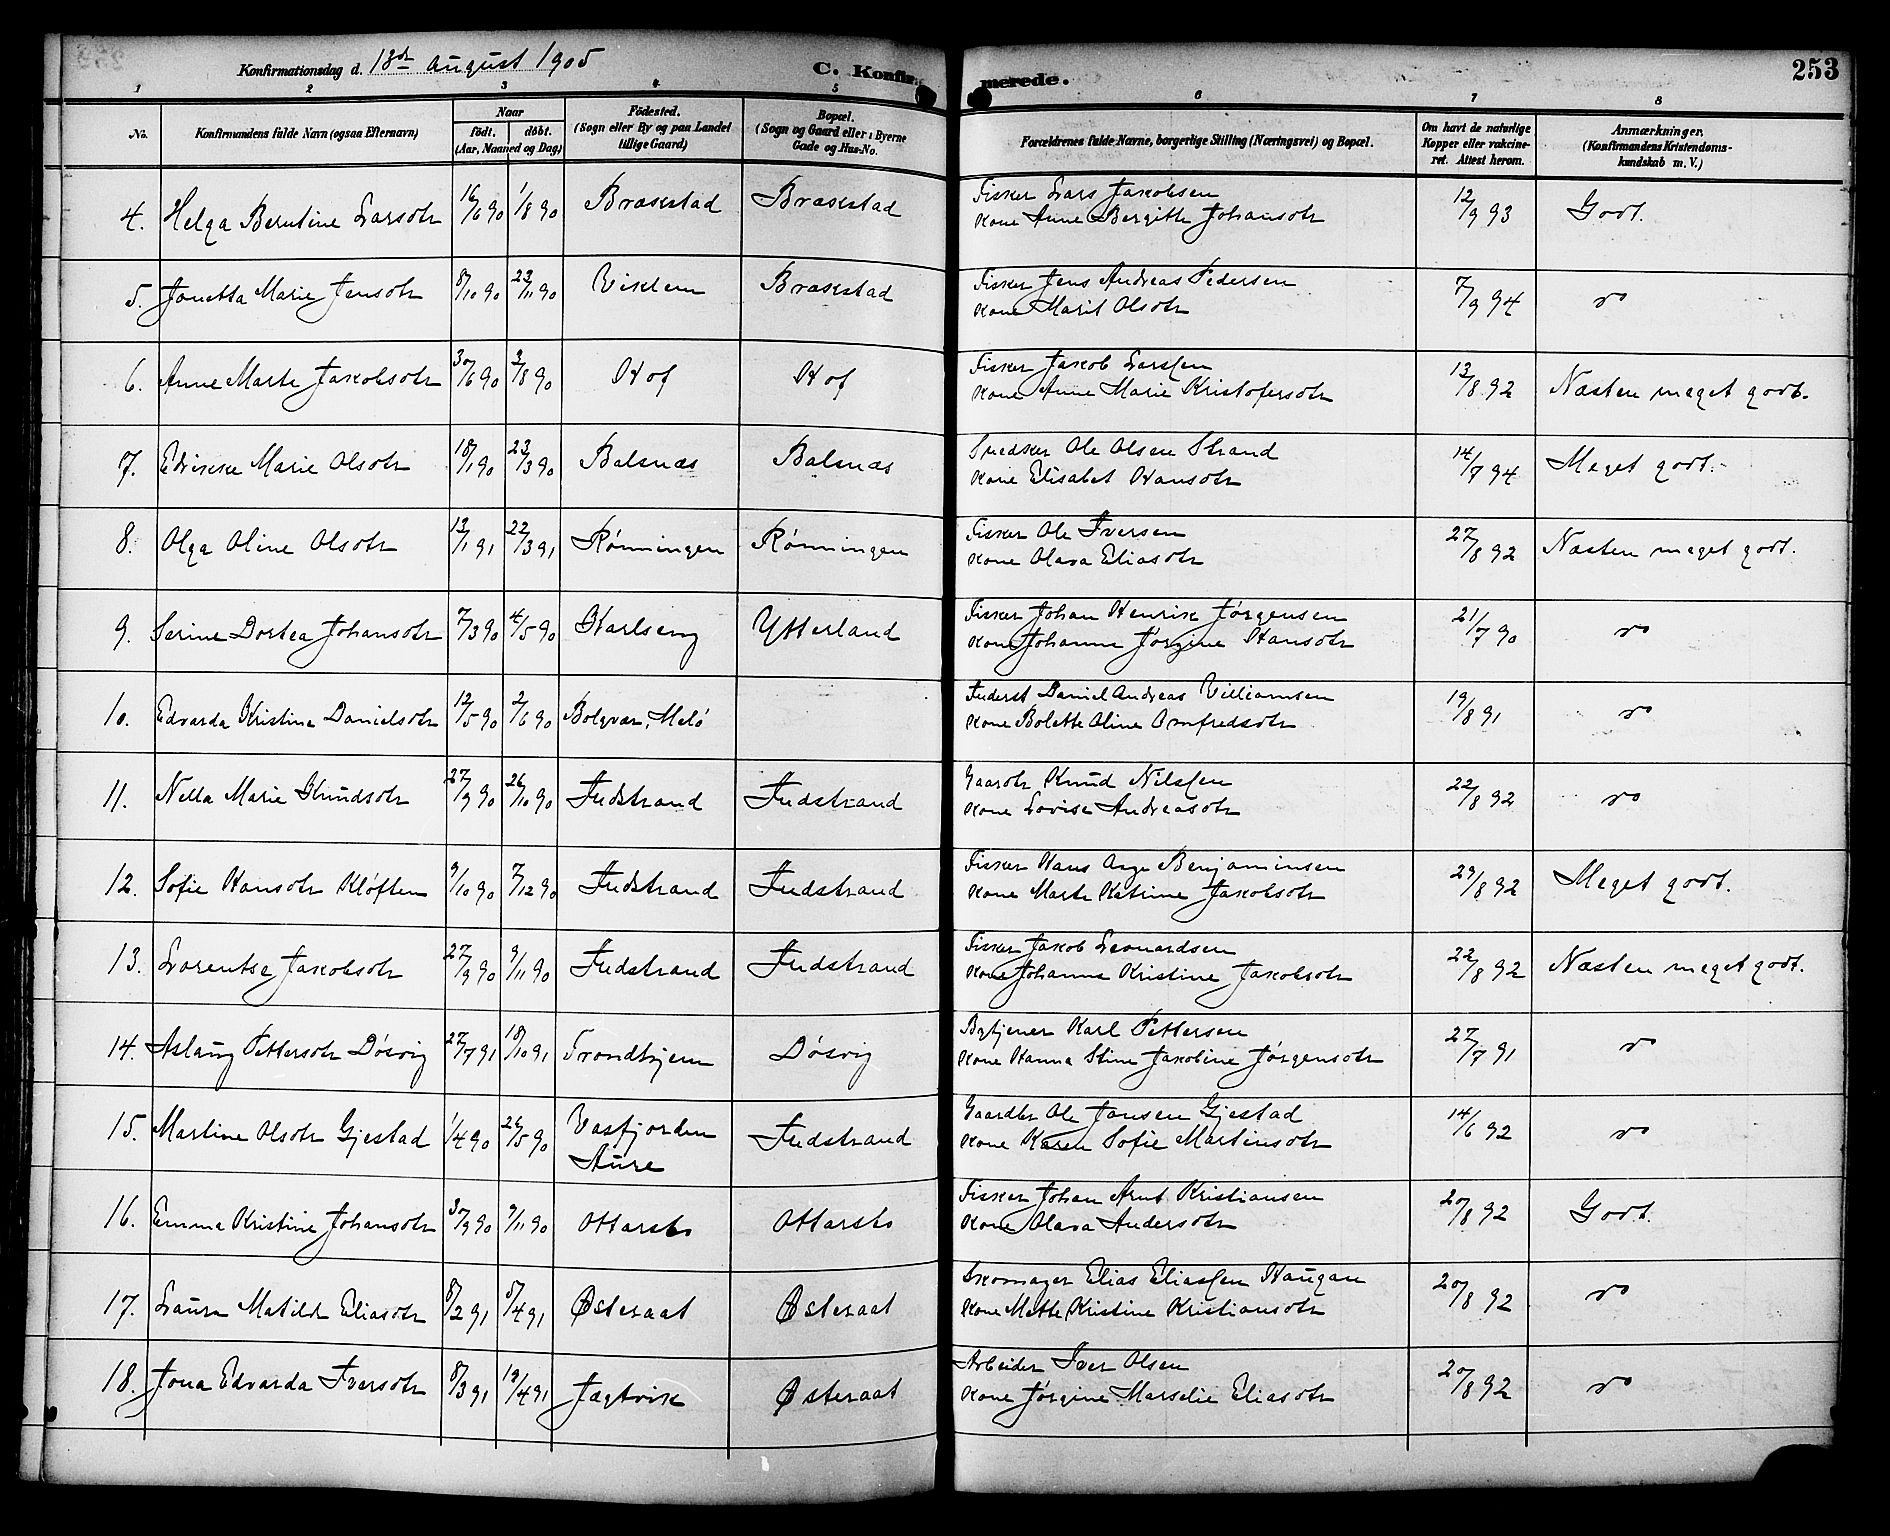 253
Konfirmationsdag d. 13de August 1905 C. Konfirmerede.
1 2 3 4 5 6 7 8
No.
Konfirmandens fulde Navn (ogsaa Efternavn)
Naar
født. døbt.
(Aar, Maaned og Dag)
Fødested.
(Sogn eller By og paa Landet
tillige Gaard)
Bopæl.
(Sogn og Gaard eller i Byerne
Gade og Hus-No.
Forældrenes fulde Navne, borgerlige Stilling (Næringsvei) og Bopæl.
Om havt de naturlige
Kopper eller vakcine-
ret. Attest herom.
Anmærkninger.
(Konfirmandens Kristendoms-
kundskab m. V.)
4. Helga Berntine Larsdtr 16/6 90 1/8 90 Brækstad Brækstad
Fisker Lars Jakobsen
Kone Anne Bergitte Johansdtr
12/9 93 Godt.
5. Jonetta Marie Jensdtr 8/10 90 23/11 90 Viklem Brækstad
Fisker Jens Andreas Pedersen
Kone Marit Olsdtr
7/9 94 do
6. Anne Marte Jakobsdtr 30/6 90 3/8 90 Hof Hof
Fisker Jakob Larssen
Kone Anne Marie Kristofersdtr
13/8 92 Næsten meget godt.
7. Edvikke Marie Olsdtr 18/1 90 23/3 90 Balsnæs Balsnæs
Snedker Ole Olsen Strand
Kone Elisabet Hansdtr
14/7 94 Meget godt.
8. Olga Oline Olsdtr 13/1 91 22/3 91 Rønningen Rønningen
Fisker Ole Iversen
Kone Olava Eliasdtr
27/8 92 Næsten meget godt.
9. Serine Dortea Johansdtr 7/3 90 4/5 90 Karlseng Ytterland
Fisker Johan Henrik Jørgensen
Kone Johanne Jørgine Hansdtr
21/7 90 do
10. Edvarda Kristine Danielsdtr 12/5 90 2/6 90 Bolgvær, Melø
Inderst Daniel Andreas Villiamsen
Kone Bolette Oline Arnfredsdtr
19/8 91 do
11. Nella Marie Knudsdtr 27/9 90 26/10 90 Indstrand Indstrand
Gaardbr Knud Nilssen
Kone Lovise Andreasdtr
22/8 92 do
12. Sofie Hansdtr Kløften 9/10 90 7/12 90 Indstrand Indstrand
Fisker Hans Aage Benjaminsen
Kone Marte Katrine Jakobsdtr
29/8 92 Meget godt.
13. Lorentse Jakobsdtr 27/9 90 9/11 90 Indstrand Indstrand
Fisker Jakob Leonardsen
Kone Johanna Kristine Jakobsdtr
22/8 92 Næsten meget godt.
14. Aslaug Pettersdtr Døsvig 27/7 91 18/10 91 Trondhjem Døsvig
Bytjener Karl Pettersen
Kone Hanna Stine Jakobine Jørgensdtr
27/7 91 do
15. Martine Olsdtr Gjestad 1/4 90 26/5 90 Vasfjorden Indstrand
Aure
Gaardbr Ole Jonsen Gjestad
Kone Karen Sofie Martinsdtr
14/6 92 do
16. Emma Kristine Johansdtr 3/9 90 9/11 90 Ottersbo Ottersbo
Fisker Johan Arnt Kristiansen
Kone Olava Andersdtr
20/8 92 Godt.
17. Laura Matilde Eliasdtr 8/2 91 5/4 91 Østeraat Østeraat
Skomager Elias Eliassen Haugan
Kone Mette Kristine Kristiansdtr
20/8 92 do
18. Jona Edvarda Iversdtr 8/3 91 19/4 91 Jægtvik Østeraat
Arbeider Iver Olsen
Kone Jørgine Marselie Eliasdtr
20/8 92 do